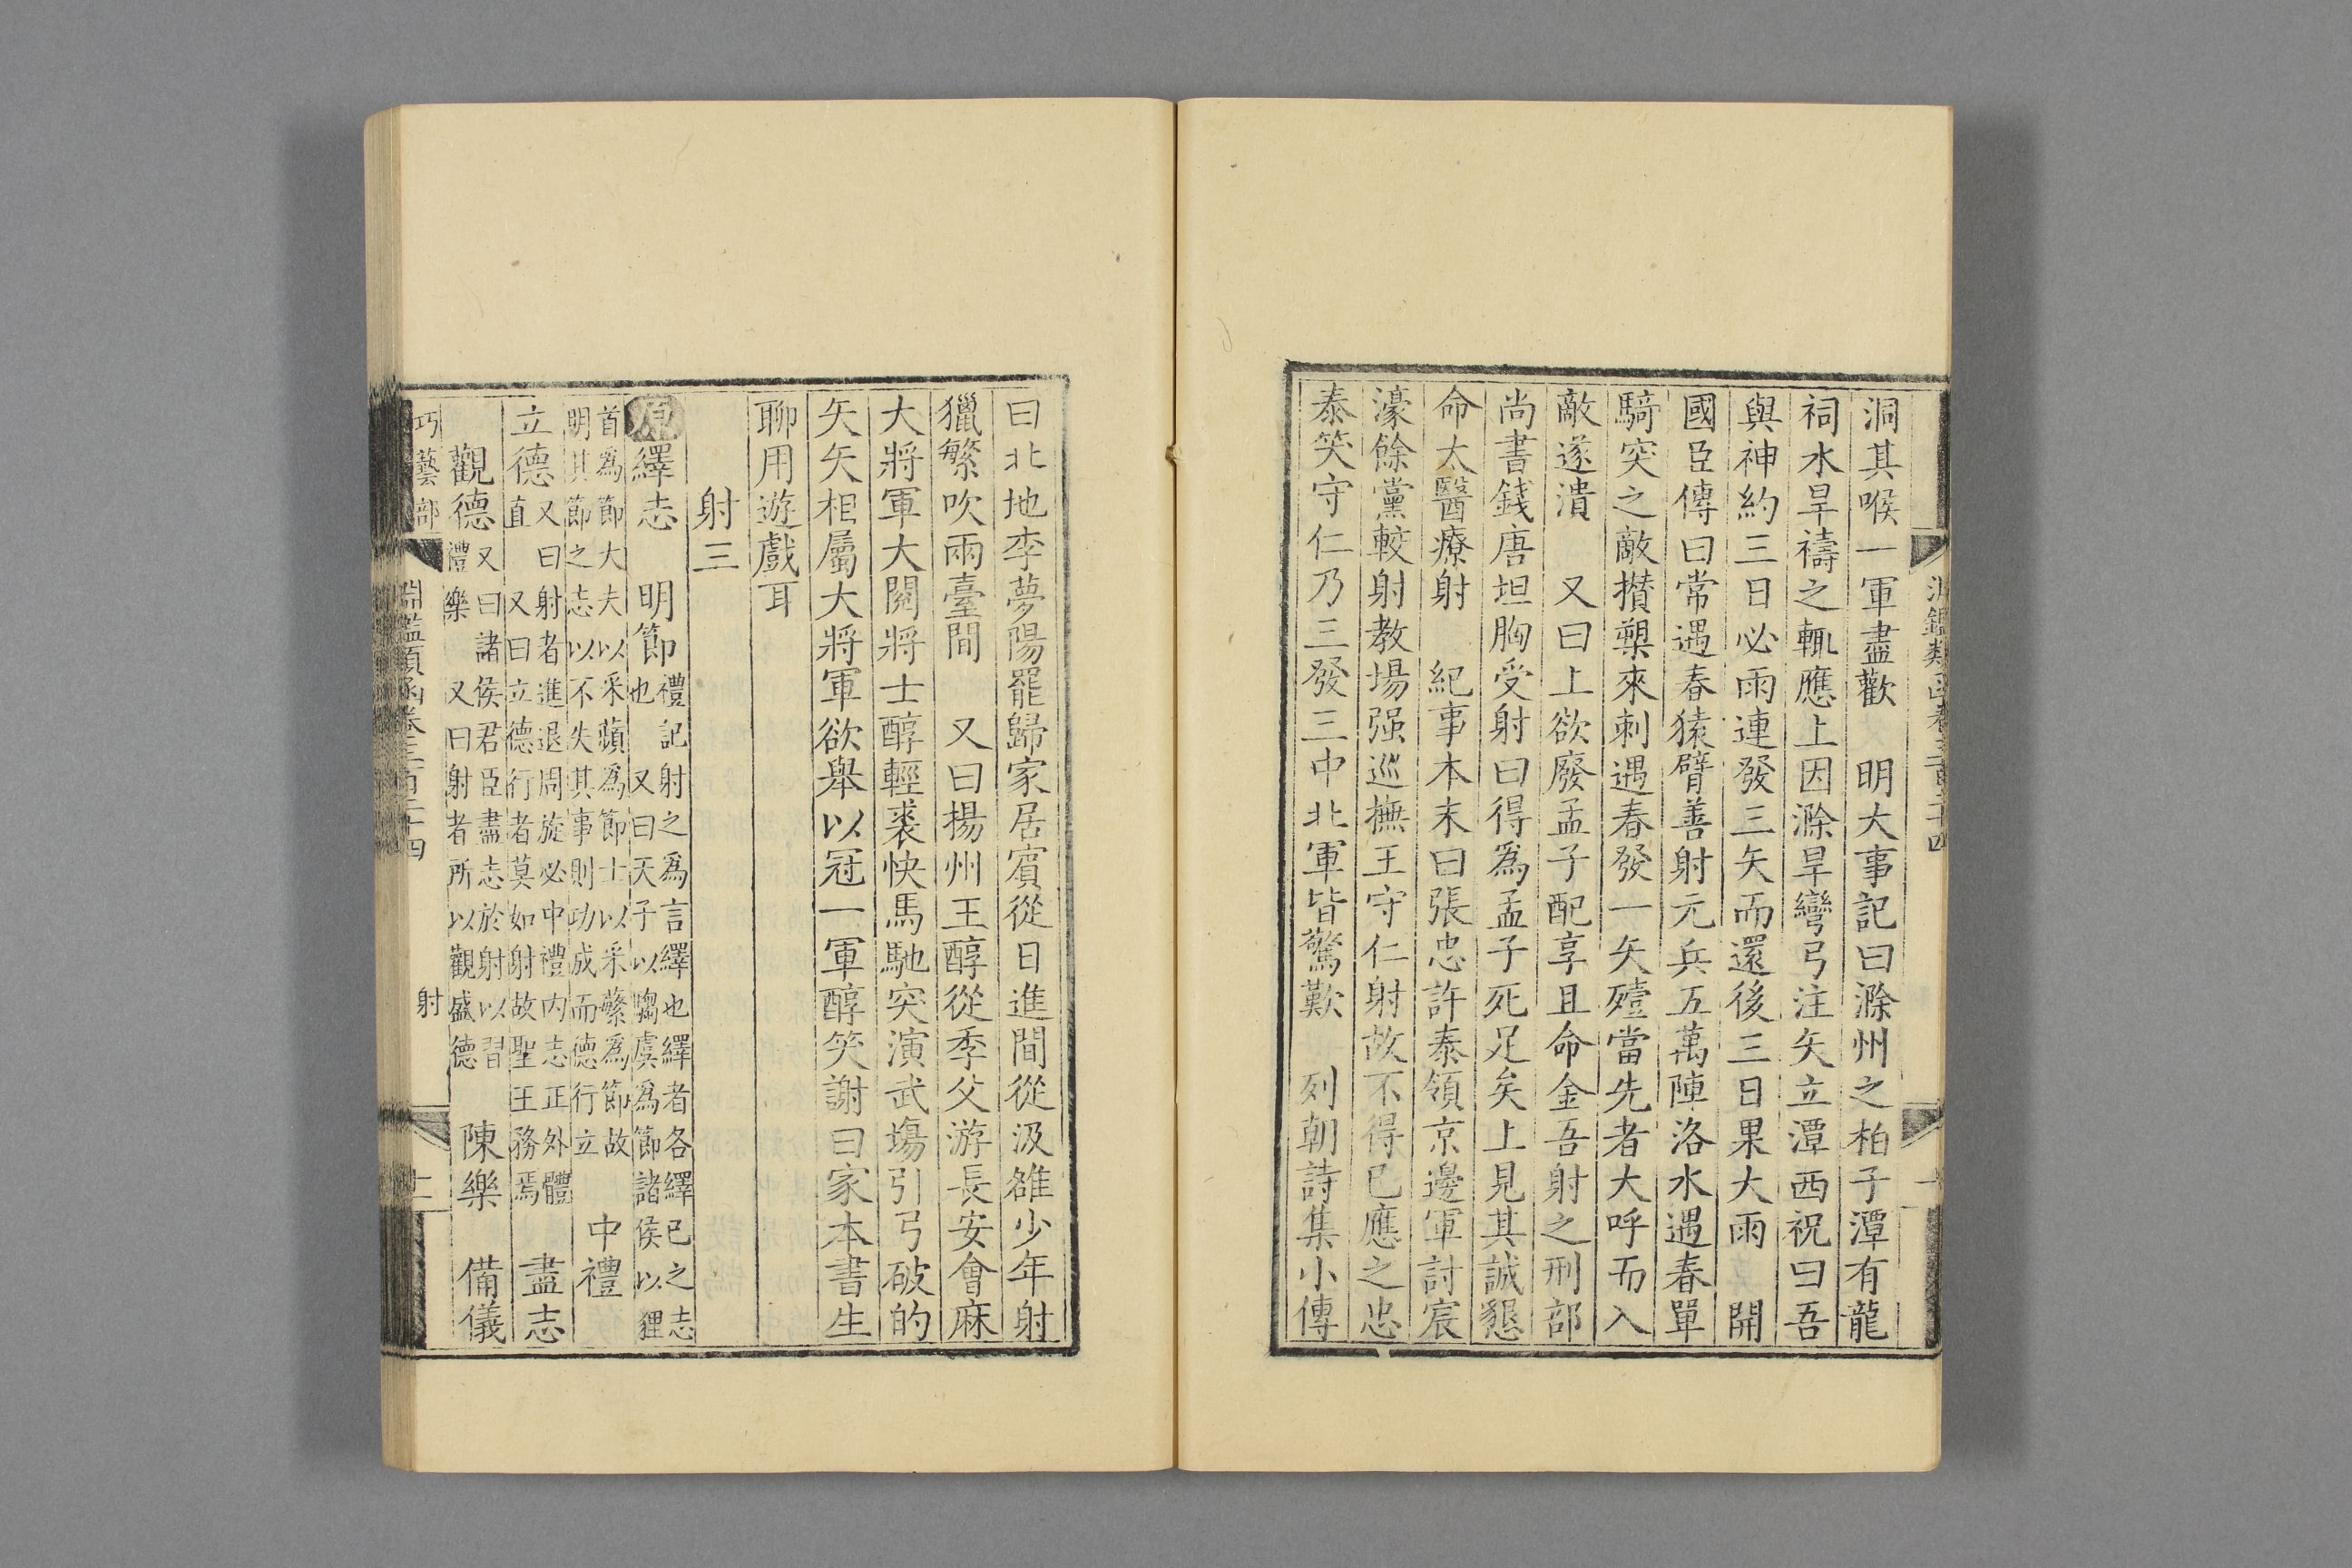 洞其喉一軍盡歡　明大事記曰滁州之柏子潭有龍
祠水旱禱之輒應上因滁旱彎弓注矢立潭西祝曰吾
與神約三日必雨連發三矢而還後三日果大雨　開
國臣傳曰常遇春猿臂善射元兵五萬陣洛水遇春單
騎突之敵攅槊來刺遇春發一矢殪當先者大呼而入
敵遂潰　又曰上欲廢孟子配享且命金吾射之刑部
尚書錢唐坦胸受射曰得爲孟子死足矣上見其誠懇
命太醫療射　紀事本末曰張忠許泰領京邊軍討宸
濠餘黨較射教場强巡撫王守仁射故不得已應之忠
泰笑守仁乃三發三中北軍皆驚歎　列朝詩集小傳
曰北地李夢陽罷歸家居賓從日進間從汲雒少年射
獵繁吹兩臺間　又曰揚州王醇從季父游長安會麻
大將軍大閱將士醇輕裘快馬馳突演武塲引弓破的
矢矢相屬大將軍欲舉以冠一軍醇笑謝曰家本書生
聊用遊戲耳
射三
原繹志　明節禮記射之爲言繹也繹者各繹已之志也　又曰天子以騶虞爲節諸侯以狸
首爲節大夫以采蘋爲節士以采蘩爲節故明其節之志以不失其事則功成而德行立　中禮
又曰射者進退周旋必中禮内志正外體直　立德又曰立德行者莫如射故聖王務焉　盡志
又曰諸侯君臣盡志於射以習禮樂　觀德又曰射者所以觀盛德　陳樂　備儀
巧藝部　淵鑑類函卷三百二十四　射　十二